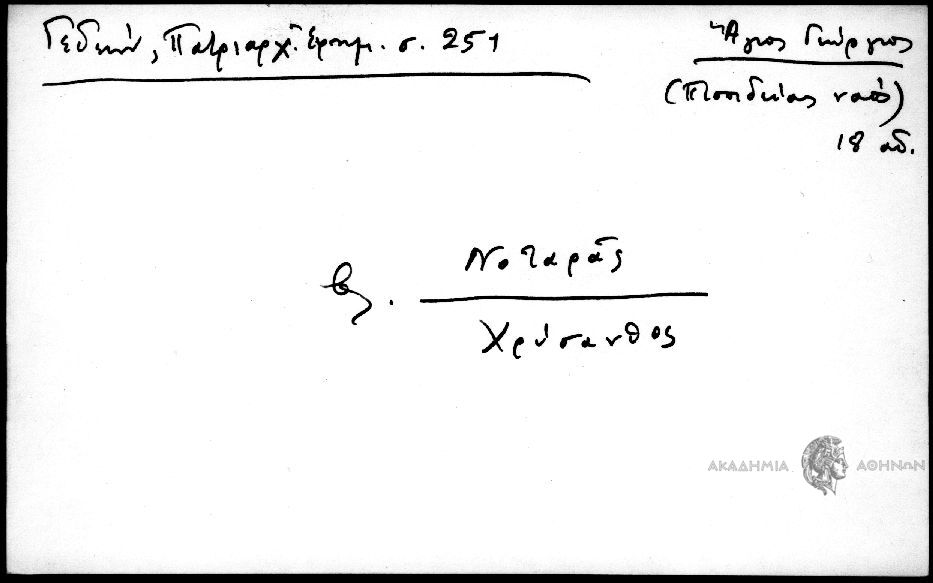 Γεδεών, Πατριαρχ. Ἐφημ. σ. 251
Ἅγιος Γεώργιος
(Πισιδείας ναός)
18 αἰ.
βλ. Νοταρᾶς
Χρύσανθος
ΑΚΑΔΗΜΙΑ ΑΘΗΝΩΝ